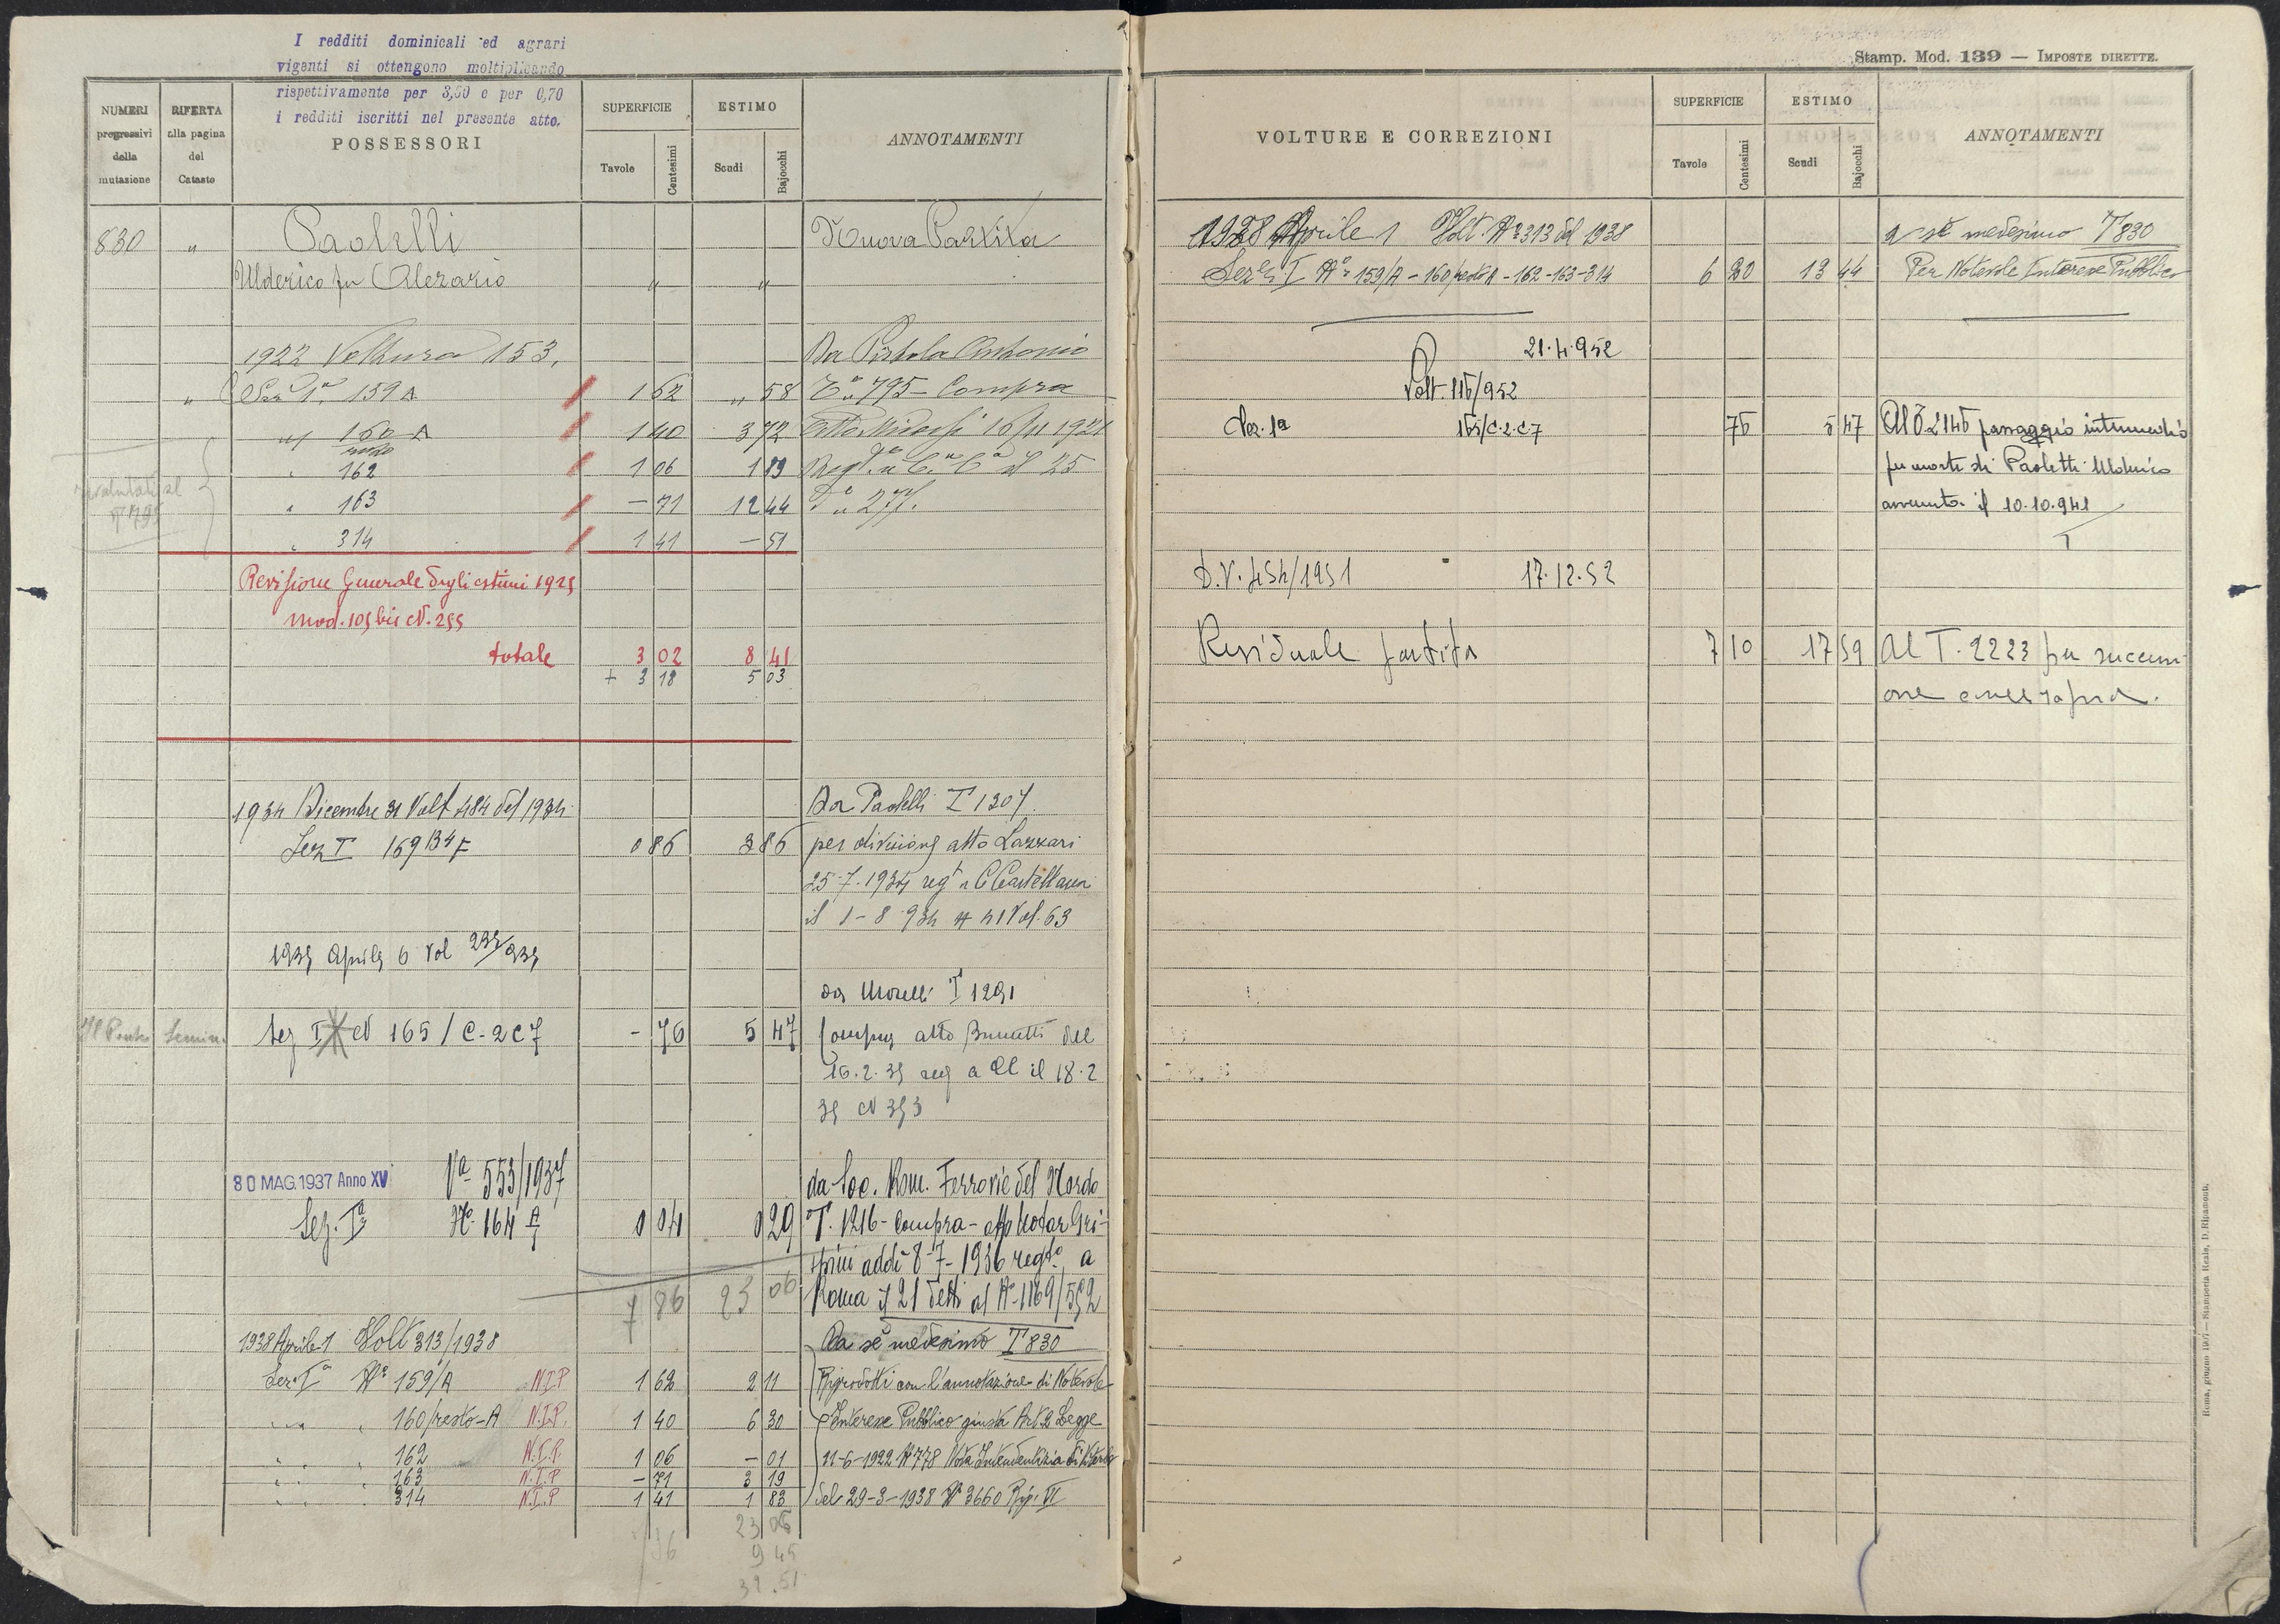 I redditi dominicali ed agrari
viganti si ottengono moltiplicando
rispettivamente per 3,50 e per 0,70
i redditi iscritti nel presente atto.
NUMERI progressivi della mutazione
RIFERTA alla pagina del Catasto
POSSESSORI
SUPERFICIE
Tavole Centesimi
ESTIMO
Scudi Bajocchi
ANNOTAMENTI
830 " Paolelli Nuova Partita
Ulderico fu " "
1922 Voltura 153. Da Antonio
" Sez 1a 159 A 1 62 " 58 T° 795 - Compra
" 160 A 1 40 3 72 Atto 10/11 1921
resto
" 162 1 06 1 89 25
" 163 - 71 12 44 277.
" 314 1 41 - 51
Revisione Generale degli estimi 1925
mod. 105 bis N. 255
totale 3 02 8 41
+ 3 18 5 03
1934 Dicembre 31 Volt 484 del 1934 Da Paolelli T 1207
Sez I 169 0 86 3 86 per divisione atto Lazzari
25-7-1934 reg a C Castellana
il 1-8-934 N 41 Vol. 63
1935 Aprile 6 Vol 232/935
da Morelli T 1291
Sez I N 165 / C-2C7 - 76 5 47 Compra atto Brunetti del
16.2.35 reg a il 18.2
35 N 353
30 MAG. 1937 Anno XV Va 553/1937 da Soc. Rom. Ferrovie del Nordo
Sez. Ia N. 164 0 04 0 29 T. 1216 - Compra - atto Notar Gri-
spini addì 8-7-1936 regto a
7 86 23 06 Roma il 21 detti al N. 1169/552
1938 Aprile 1 Volt 313/1938 Da sè medesimo T 830
Sez. Ia No 159/A N.I.P 1 62 2 11 Riprodotti con l'annotazione di Notevole
" " 160/resto-A N.I.P. 1 40 6 30 Interesse Pubblico giusta Art. 2 Legge
" " 162 N.I.P. 1 06 - 01 11-6-1922 N 778 Nota Intendentizia di Viterbo
" " 163 N.I.P - 71 3 19
" " 314 N.I.P 1 41 1 83 del 29-3-1938 No 3660 Rip. VI
23 06
9 45
Stamp. Mod. 139 — IMPOSTE DIRETTE.
VOLTURE E CORREZIONI
SUPERFICIE
Tavole Centesimi
ESTIMO
Scudi Bajocchi
ANNOTAMENTI
1938 Aprile 1 Volt. No 313 del 1938 a sè medesimo T 830
Sez I No 159/A - 160/resto A - 162-163-314 6 20 13 44 Per Notevole Interesse Pubblico
21.4.952
Volt. 116/952
Sez. 1a 165/C.2.C7 76 5 47 Al T 2146 passaggio intermedio
per morte di Paoletti Ulderico
avvenuta il 10.10.941
D.V. 454/1951 17.12.52
Residuale partita 7 10 17 59 Al T. 2223 per successi-
one
Roma, giugno — Stamperia Reale, D. Ripamonti.